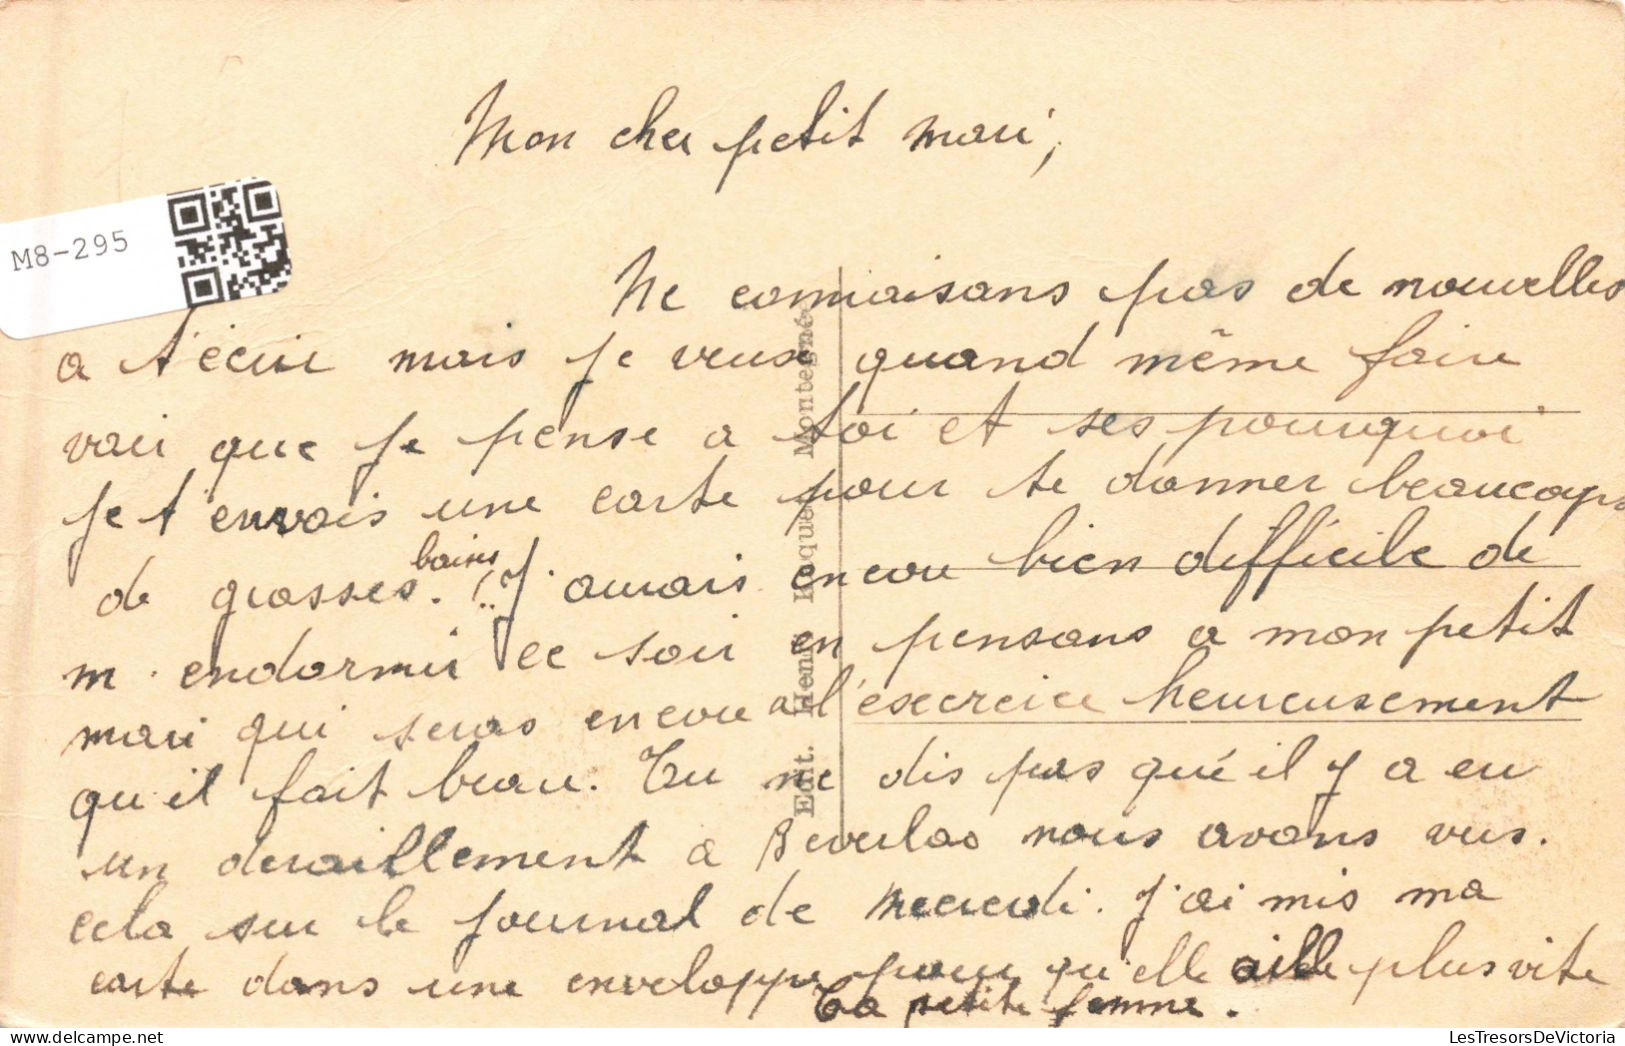 Mon cher petit mari,
M8-295
Ne connaisans pas de nouvelles
a t'écrir mais je veuse quand même fair
voir que je pense a toi et ses pourquoi
je t'envois une carte pour te donner beaucoups
de grosses bains.!.. J'aurais encore bien difficile de
m'endormir ce soir en pensans a mon petit
mari qui seras encore a l'esecreice heureusement
qu'il fait beau. Tu me dis pas qué il y a eu
un deraillement a Beverlao nous avons vus.
cela sur le journal de Mecredi. J'ai mis ma
carte dans une enveloppe pour qu'elle aille plus vite
Ta petite femme.
Edit. Henri Kaquet, Montegnée
LesTresorsDeVictoria